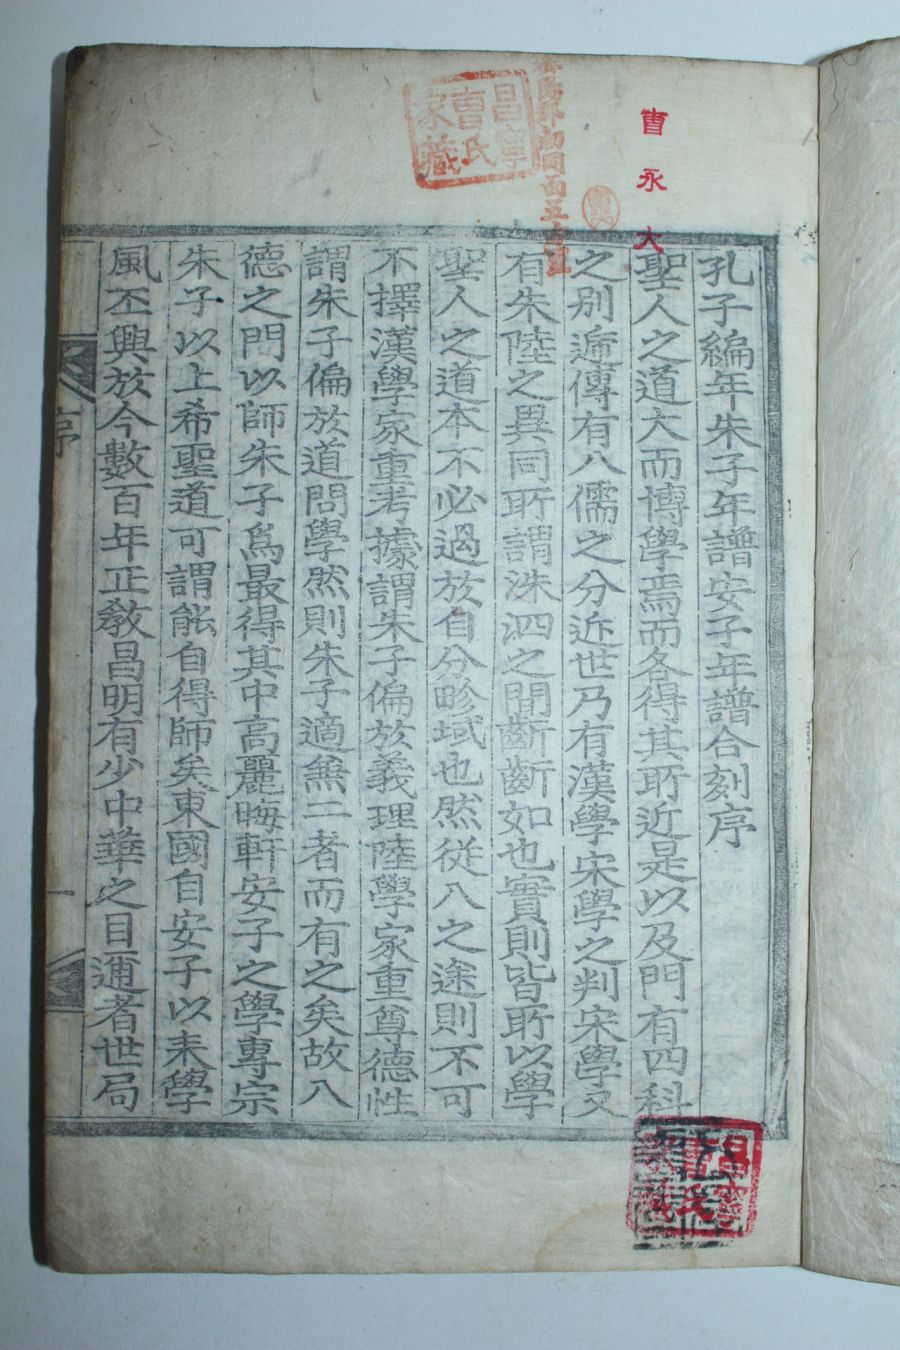 孔子編年朱子年譜安子年譜合刻序
聖人之道大而博學焉而各得其所近是以及門有四科
之别遞傳有八儒之分近世乃有漢學宋學之判宋學又
有朱陸之異同所謂洙泗之間斷斷如也實則皆所以學
聖人之道本不必過於自分畛域也然從入之途則不可
不擇漢學家重考據謂朱子偏於義理陸學家重尊德性
謂朱子偏於道問學然則朱子適無二者而有之矣故入
德之門以師朱子爲最得其中高麗晦軒安子之學專宗
朱子以上希聖道可謂能自得師矣東國自安子以来學
風丕興於今數百年正敎昌明有少中華之目邇者世局
序
一
曺永大
昌寧曺氏家藏
昌寧曺氏